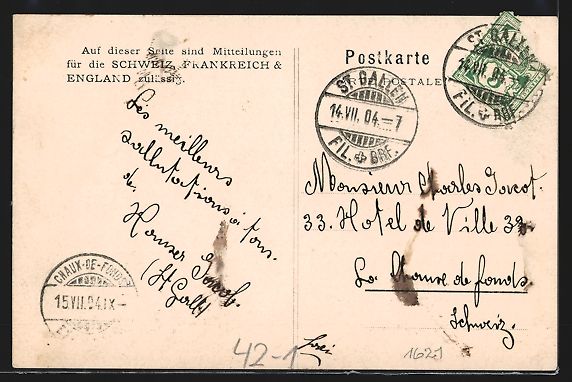 Auf dieser Seite sind Mitteilungen
für die SCHWEIZ, FRANKREICH &
ENGLAND zulässig.
Postkarte
POSTALE
ST. GALLEN
14.VII.04.–7
FIL. BRF.
ST. GALLEN
14.VII.04.–7
FIL. BRF.
5
Les meilleurs
sallutations à tous.
de
(St Gall)
Monsieur Charles
33. Hotel de Ville 33.
La Chaux de fonds.
Schweiz.
CHAUX-DE-FONDS
15.VII.04.IX–
42-1
1621